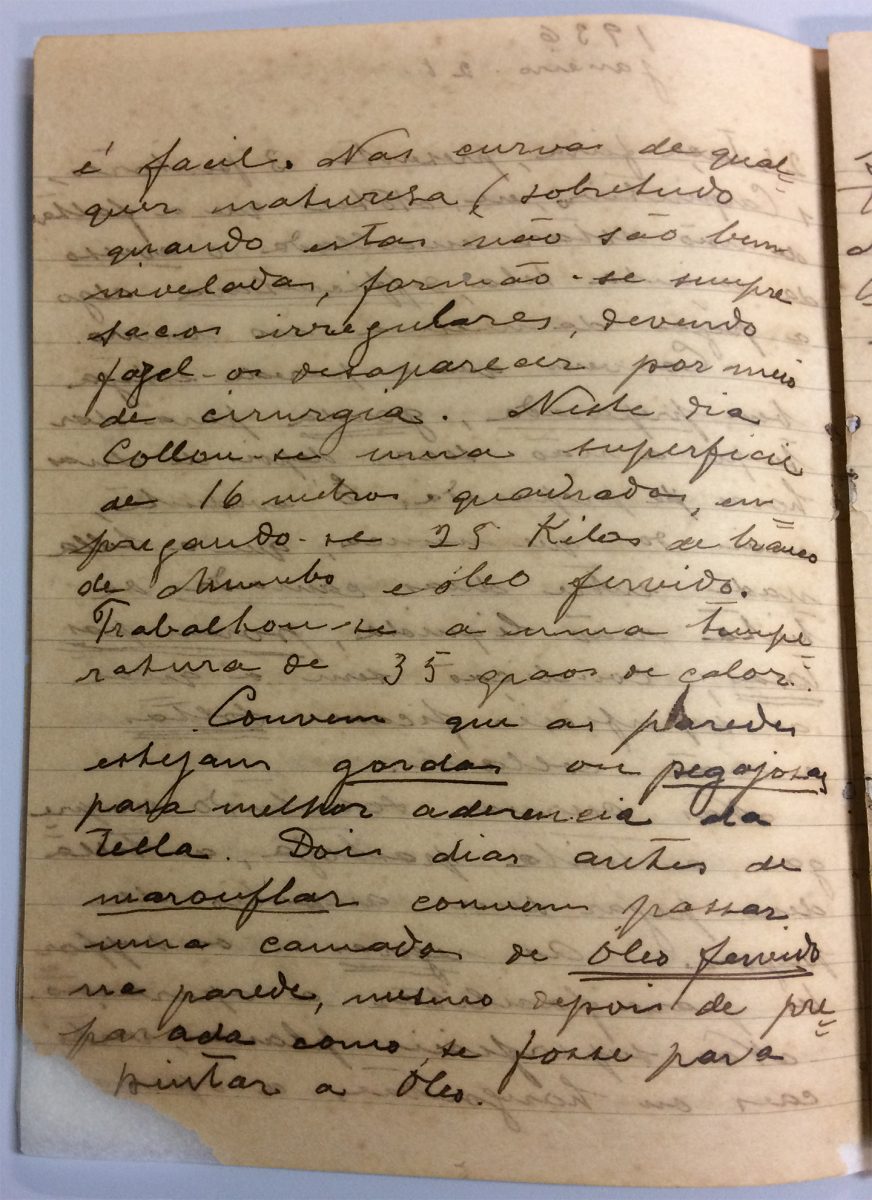 é facil. Nas curvas de qual=
quer naturesa (sobretudo
quando estas não são bem
niveladas, formão-se sempre
sacos irregulares, devendo
fazel-os desaparecer por meio
de cirurgia. Neste dia
Collou-se uma superficie
de 16 metros quadrados, em=
pregando-se 25 Kilos de branco
de chumbo e óleo fervido.
Trabalhou-se a uma tempe=
ratura de 35 graos de calor.
Convem que as paredes
estejam gordas ou pegajosas
para melhor aderencia da
tella. Dois dias antes de
marouflar convem passar
uma camada de Óleo fervido
na parede, mesmo depois de pre=
parada como se fosse para
pintar a Óleo.